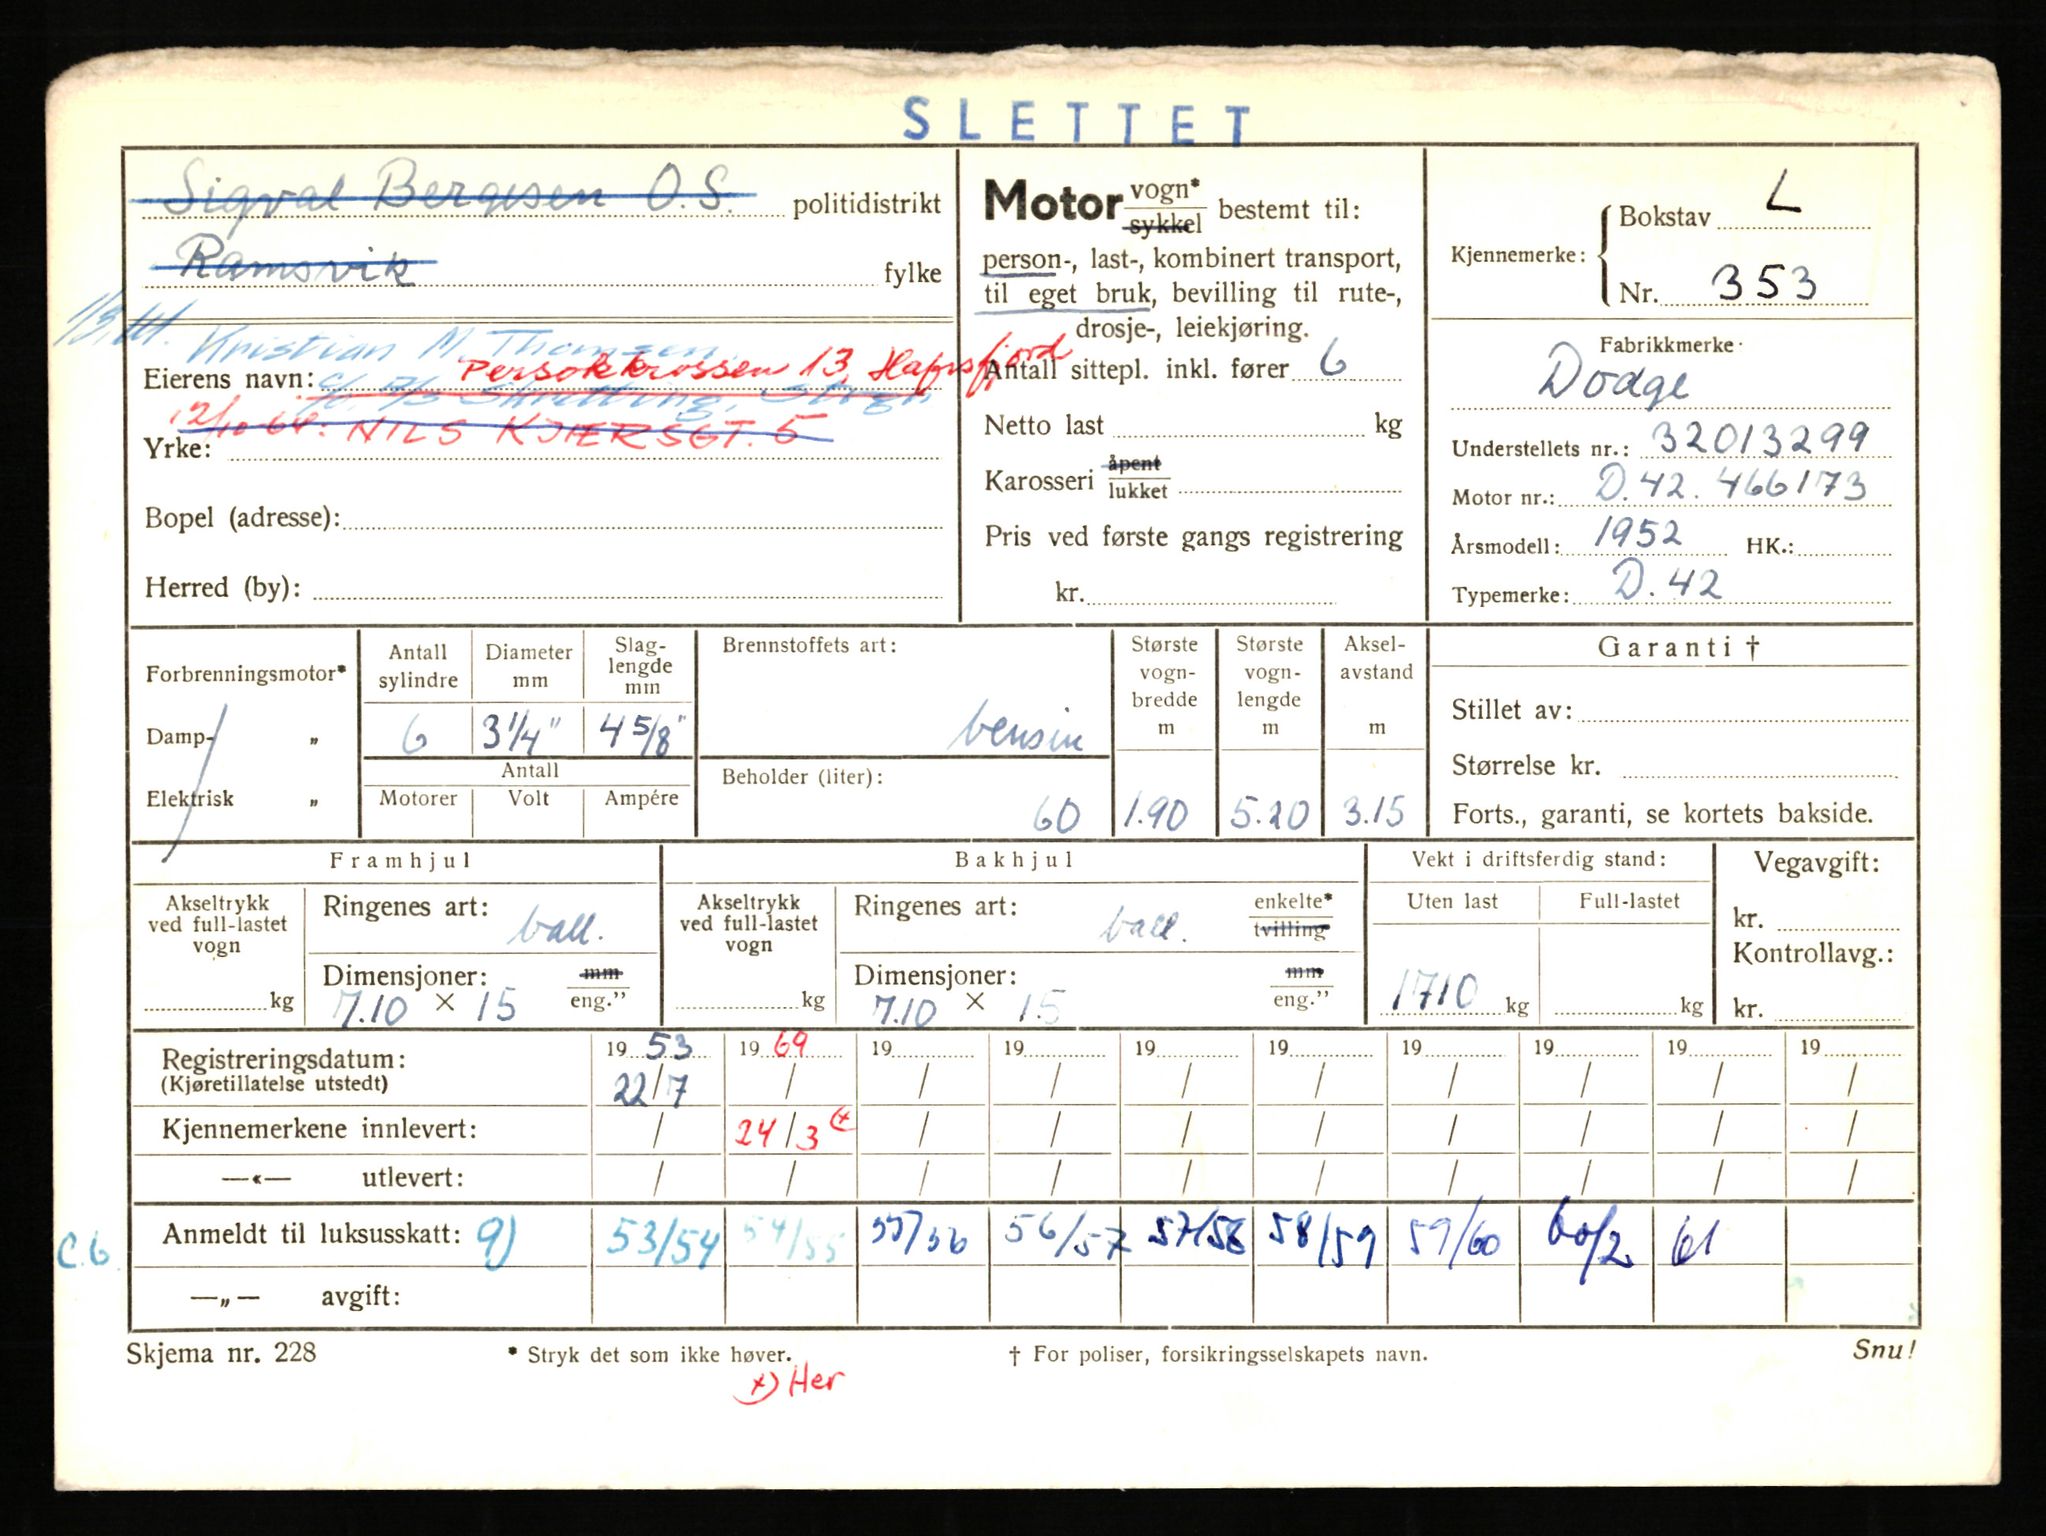 SLETTET
Sigval Bergesen O.S. politidistrikt
Ramsvik fylke
Kristian M Thomsen
Persokkrossen 13, Hafrsfjord
Eierens navn:
12/10-64: NILS KJÆRSGT. 5
Yrke:
Bopel (adresse):
Herred (by):
Motor vogn* sykkel bestemt til:
person-, last-, kombinert transport,
til eget bruk, bevilling til rute-,
drosje-, leiekjøring.
Antall sittepl. inkl. fører 6
Netto last kg
Karosseri åpent lukket
Pris ved første gangs registrering
kr.
Kjennemerke: Bokstav L
Nr. 353
Fabrikkmerke
Dodge
Understellets nr.: 32013299
Motor nr.: D.42. 466173
Årsmodell: 1952 HK.:
Typemerke: D.42
Forbrenningsmotor*
Damp- „
Elektrisk „
Antall sylindre 6
Diameter mm 3 1/4"
Slaglengde mm 4 5/8"
Antall
Motorer Volt Ampére
Brennstoffets art: bensin
Beholder (liter): 60
Største vognbredde m 1.90
Største vognlengde m 5.20
Akselavstand m 3.15
Garanti †
Stillet av:
Størrelse kr.
Forts., garanti, se kortets bakside.
Framhjul
Akseltrykk ved full-lastet vogn kg
Ringenes art: ball.
Dimensjoner: mm
7.10 × 15 eng."
Bakhjul
Akseltrykk ved full-lastet vogn kg
Ringenes art: ball. enkelte* tvilling
Dimensjoner: mm
7.10 × 15 eng."
Vekt i driftsferdig stand:
Uten last Full-lastet
1710 kg kg
Vegavgift:
kr.
Kontrollavg.:
kr.
Registreringsdatum: 19 53 19 69 19 19 19 19 19 19 19 19
(Kjøretillatelse utstedt) 22/7 / / / / / / / / /
Kjennemerkene innlevert: / 24/3 (x / / / / / / / /
—«— utlevert: / / / / / / / / / /
C.6. Anmeldt til luksusskatt: 9) 53/54 54/55 55/56 56/57 57/58 58/59 59/60 60/2. 61
—„— avgift:
Skjema nr. 228 * Stryk det som ikke høver. † For poliser, forsikringsselskapets navn. Snu!
x) Her